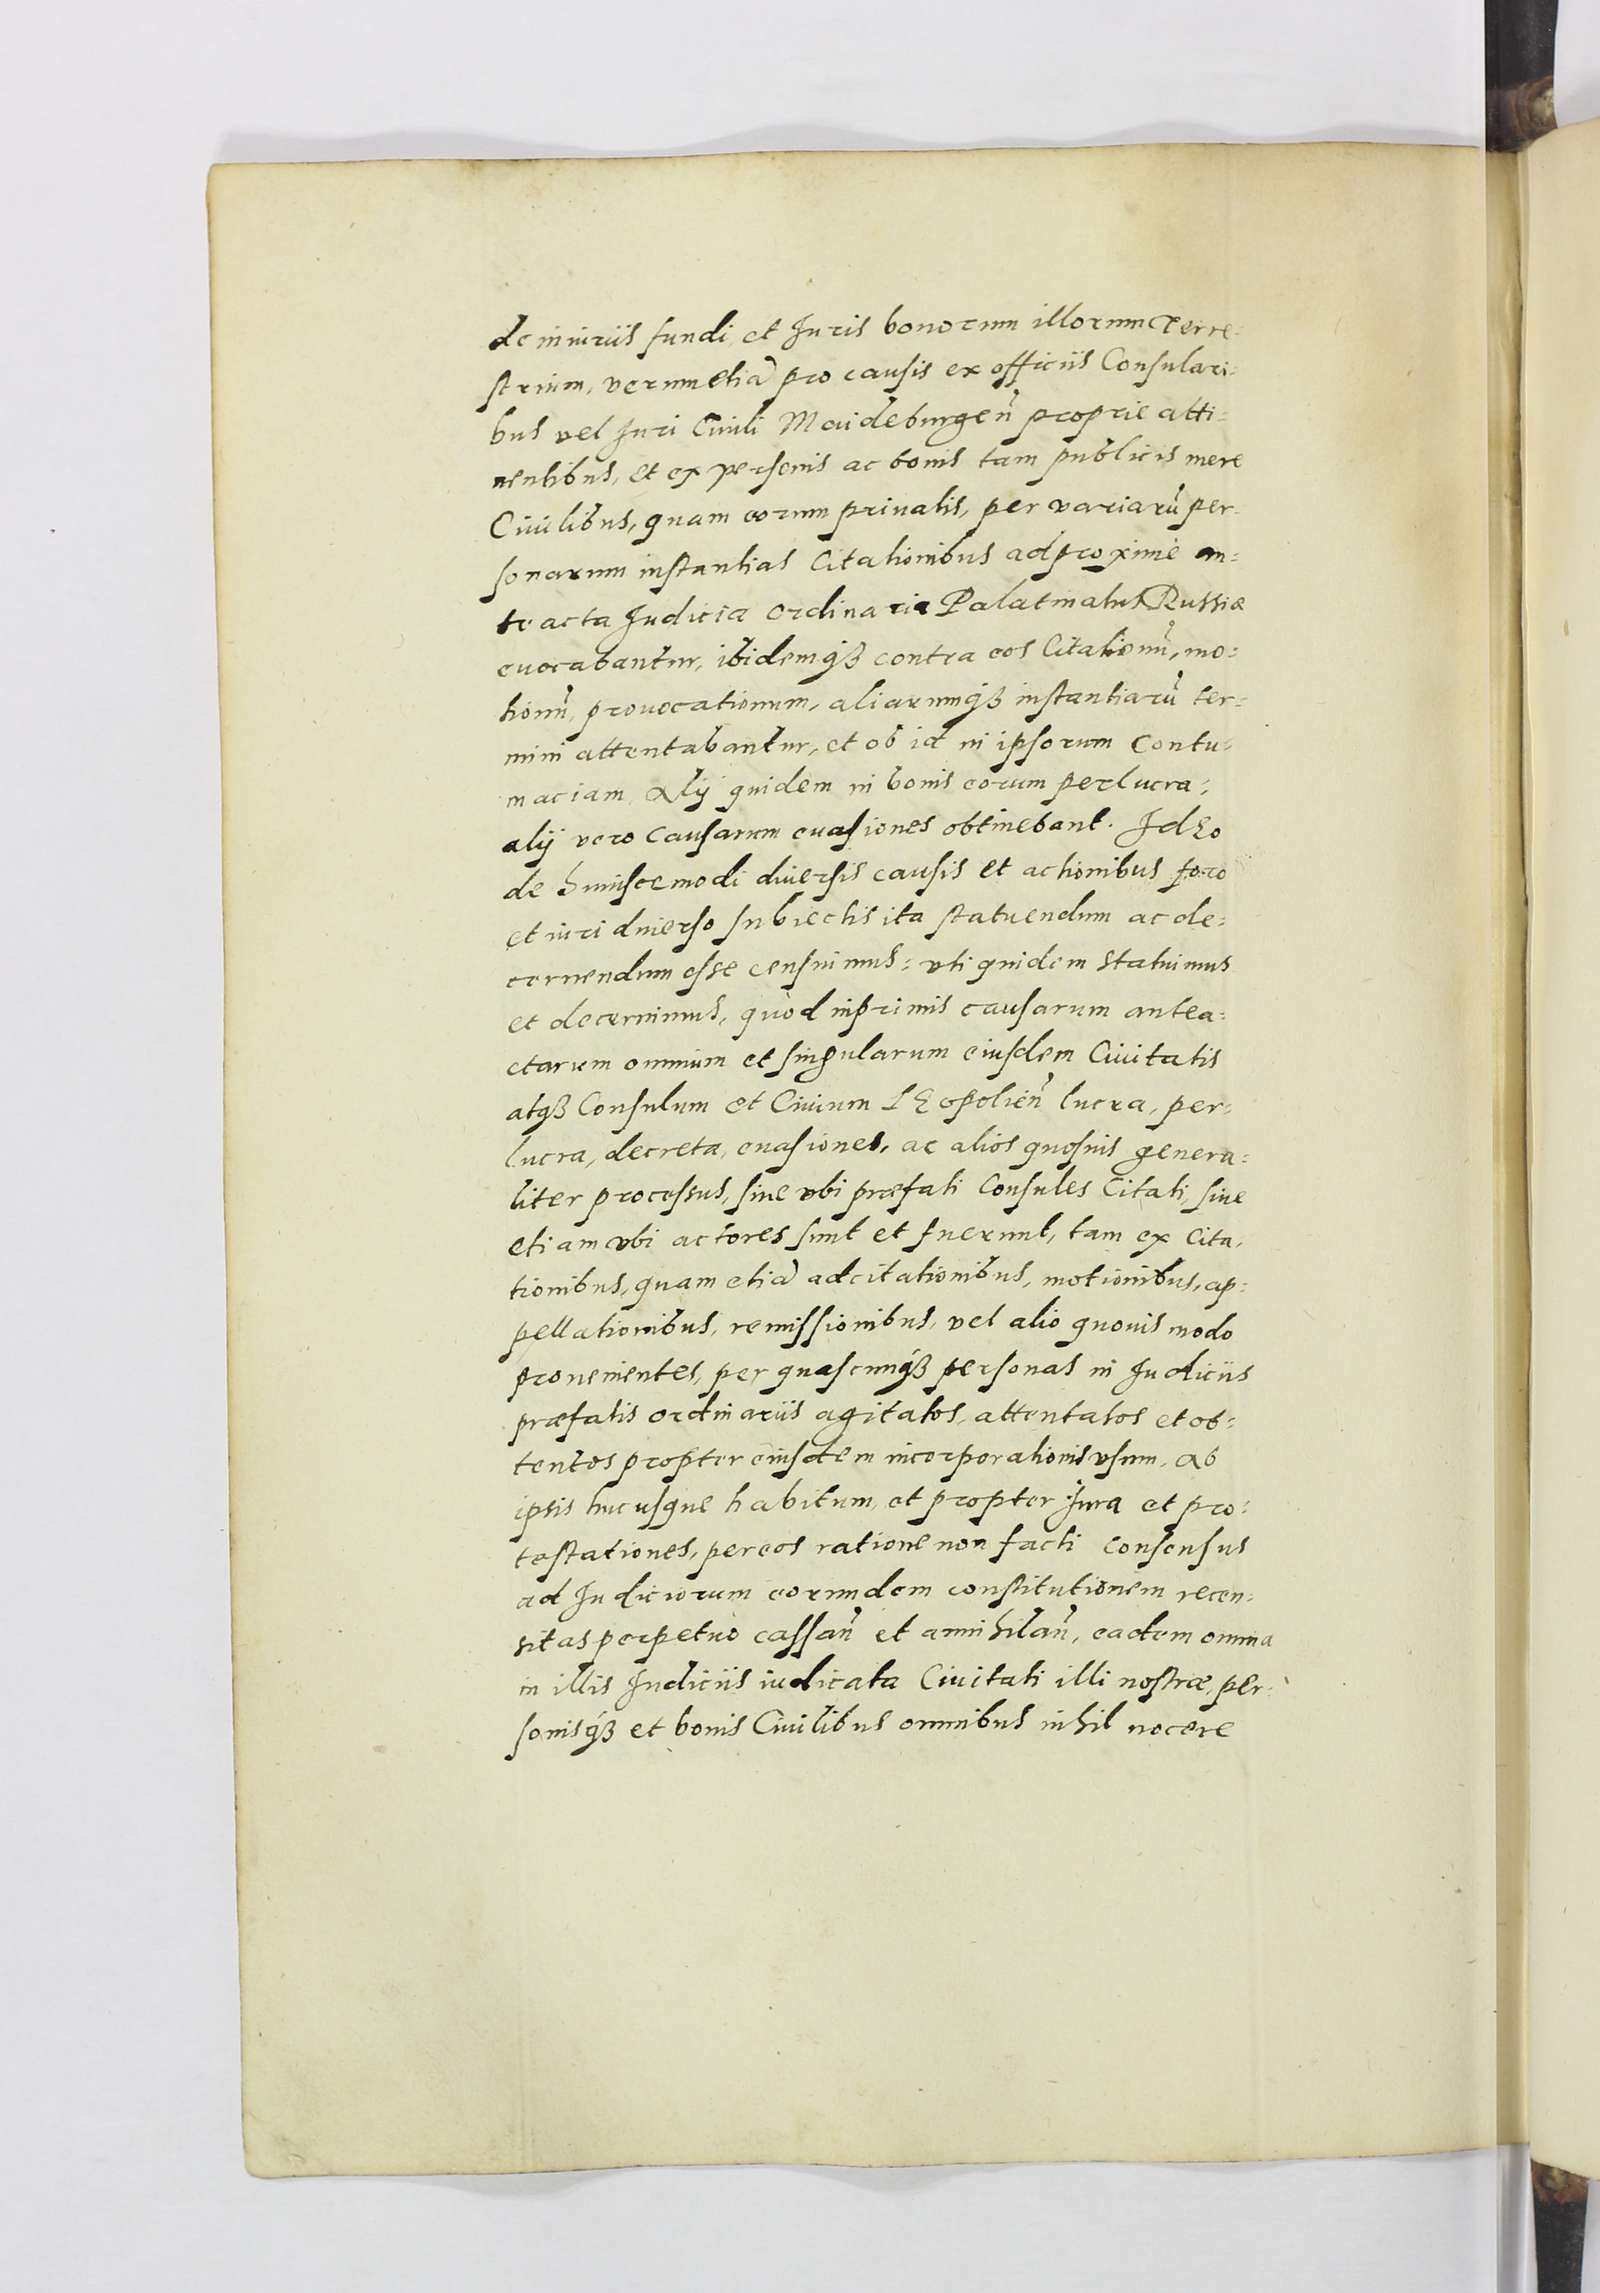 de iniuriis fundi, et Juris bonorum illorum Terre-
strium, verumetiā pro causis ex officiis Consulari-
bus vel Juri Ciuili Maideburgen̄ proprie atti-
nentibus, et ex personis ac bonis tam publicis mere
Ciuilibus, quam eorum priuatis, per variarū per-
sonarum instantias Citationibus ad proxime an-
te acta Judicia ordinaria Palatinatus Russiæ
euocabantur, ibidemqꝫ contra eos Citationū, mo-
tionū, prouocationum, aliarumqꝫ instantiarū ter-
mini attentabantur, et ob id in ipsorum Contu-
maciam, Alij quidem in bonis eorum perlucra,
alij vero Causarum euasiones obtinebant. Ideo
de huiuscemodi diuersis causis et actionibus foro
et iuri diuerso subiectis ita statuendum ac de-
cernendum esse censuimus: vti quidem statuimus
et decernimus, quòd inprimis causarum antea-
ctarum omnium et singularum eiusdem Ciuitatis
atqꝫ Consulum et Ciuium LEopolien̄ lucra, per-
lucra, decreta, euasiones, ac alios quosuis genera-
liter processus, siue vbi præfati Consules Citati, siue
etiam vbi actores sunt et fuerunt, tam ex Cita-
tionibus, quam etiā adcitationibus, motionibus, ap-
pellationibus, remissionibus, vel alio quouis modo
prouenientes, per quascunqꝫ personas in Judiciis
præfatis ordinariis agitatos, attentatos et ob-
tentos propter eiusdem incorporationis vsum, Ab
ipsis hucusque habitum, et propter Jura et pro-
testationes, per eos ratione non facti Consensus
ad Judiciorum eorundem constitutionem recen-
sitas perpetuò cassan̄ et annihilan̄, eadem omnia
in illis Judiciis iudicata Ciuitati illi nostræ, per-
sonisqꝫ et bonis Ciuilibus omnibus nihil nocere